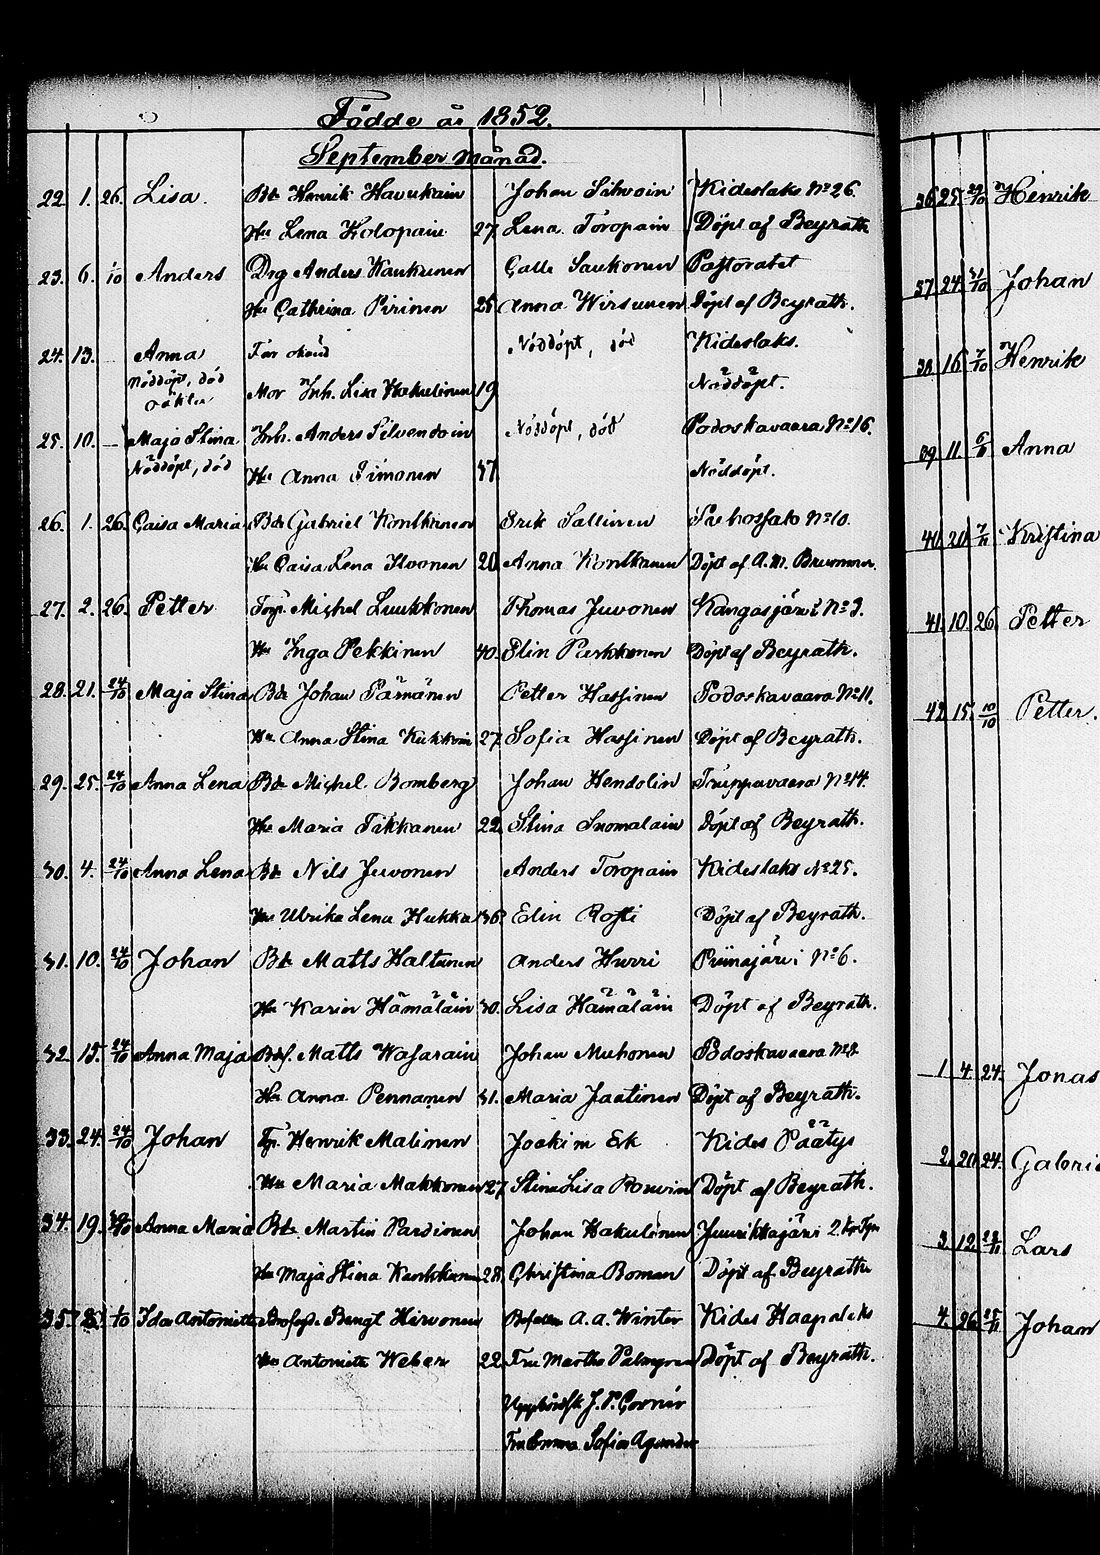 Födde år 1852.
September Månad.
22. 1. 26. Lisa. Bd. Henrik Havukain Johan Silvoin Kideslaks No 26.
Hu Lena Kolopain 27. Lena Toropain Döpt af Beyrath
23. 6. 1/10 Anders Drg Anders Kaukunen Calle Saukonen Pastoratet
Hu Cathrina Pirinen 25 Anna Wirsunen Döpt af Beyrath.
24. 13. Anna Far okänd Nöddöpt, död Kideslaks.
Nöddöpt, död oäkta Mor Inh. Lisa Hakulinen 19. Nöddöpt.
25. 10. Maja Stina Inh. Anders Silvendoin Nöddöpt, död Podoskavaara No 16.
Nöddöpt, död Hu Anna Timonen 37. Nöddöpt.
26. 1. 26. Caisa Maria Bd. Gabriel Kontkanen Erik Sallinen No 10.
Hu Caisa Lena 20. Anna Kontkanen Döpt af A. M. Brummer.
27. 2. 26. Petter Torp. Michel Luukkonen Thomas Juvonen Kangasjärvi No 3.
Hu Inga Pekkinen 40. Elin Purkkonen Döpt af Beyrath.
28. 21. 24/10 Maja Stina Bd. Johan Pärnänen Petter Hassinen Podoskavaara No 11.
Hu Anna Stina Kukkoin 27. Sofia Hassinen Döpt af Beyrath.
29. 25. 24/10 Anna Lena Bd. Michel Bomberg Johan Hendolin Truppavaara No 14.
Hu Maria Tikkanen 22. Stina Suomalain Döpt af Beyrath.
30. 4. 24/10 Anna Lena Bd. Nils Juvonen Anders Toropain Kideslaks No 25.
Hu Ulrika Lena Hukka 36. Elin Rosti Döpt af Beyrath.
31. 10. 24/10 Johan Bd. Matts Haltunen Anders Hurri Piinajärvi No 6.
Hu Karin Hämäläin 30. Lisa Hämäläin Döpt af Beyrath.
32. 15. 24/10 Anna Maja Bdf. Matts Wasarain Johan Muhonen Podoskavaara No 8
Hu Anna Pennanen 31. Maria Jaatinen Döpt af Beyrath.
33. 24. 24/10 Johan Tp. Henrik Malinen Joakim Ek Kides Päätys
Hu Maria Makkonen 27. Stina Lisa Rouvin Döpt af Beyrath.
34. 19. Anna Maria Bd. Martin Pardinen Johan Hakulinen Juurikkajärvi 2.
Hu Maja Stina Kontkanen 28. Christina Boman Döpt af Beyrath
35. 1/10 Ida Antoinette Bengt Hirvonen A. A. Winter Kides Haapaleks
Hu Antoinette Weber 22. Fru Martha Palmgren Döpt af Beyrath.
J. P.
Fru Emma Sofia
36. 25. 24/10 Henrik
37. 24. 31/10 Johan
38. 16. 7/10 Henrik
39. 11. Anna
40. 20. 7/11 Kristina
41. 10. 26 Petter
42. 15. 10/10 Petter.
1. 4. 24. Jonas
2. 20. 24. Gabri
3. 12. Lars
4. 26. Johan